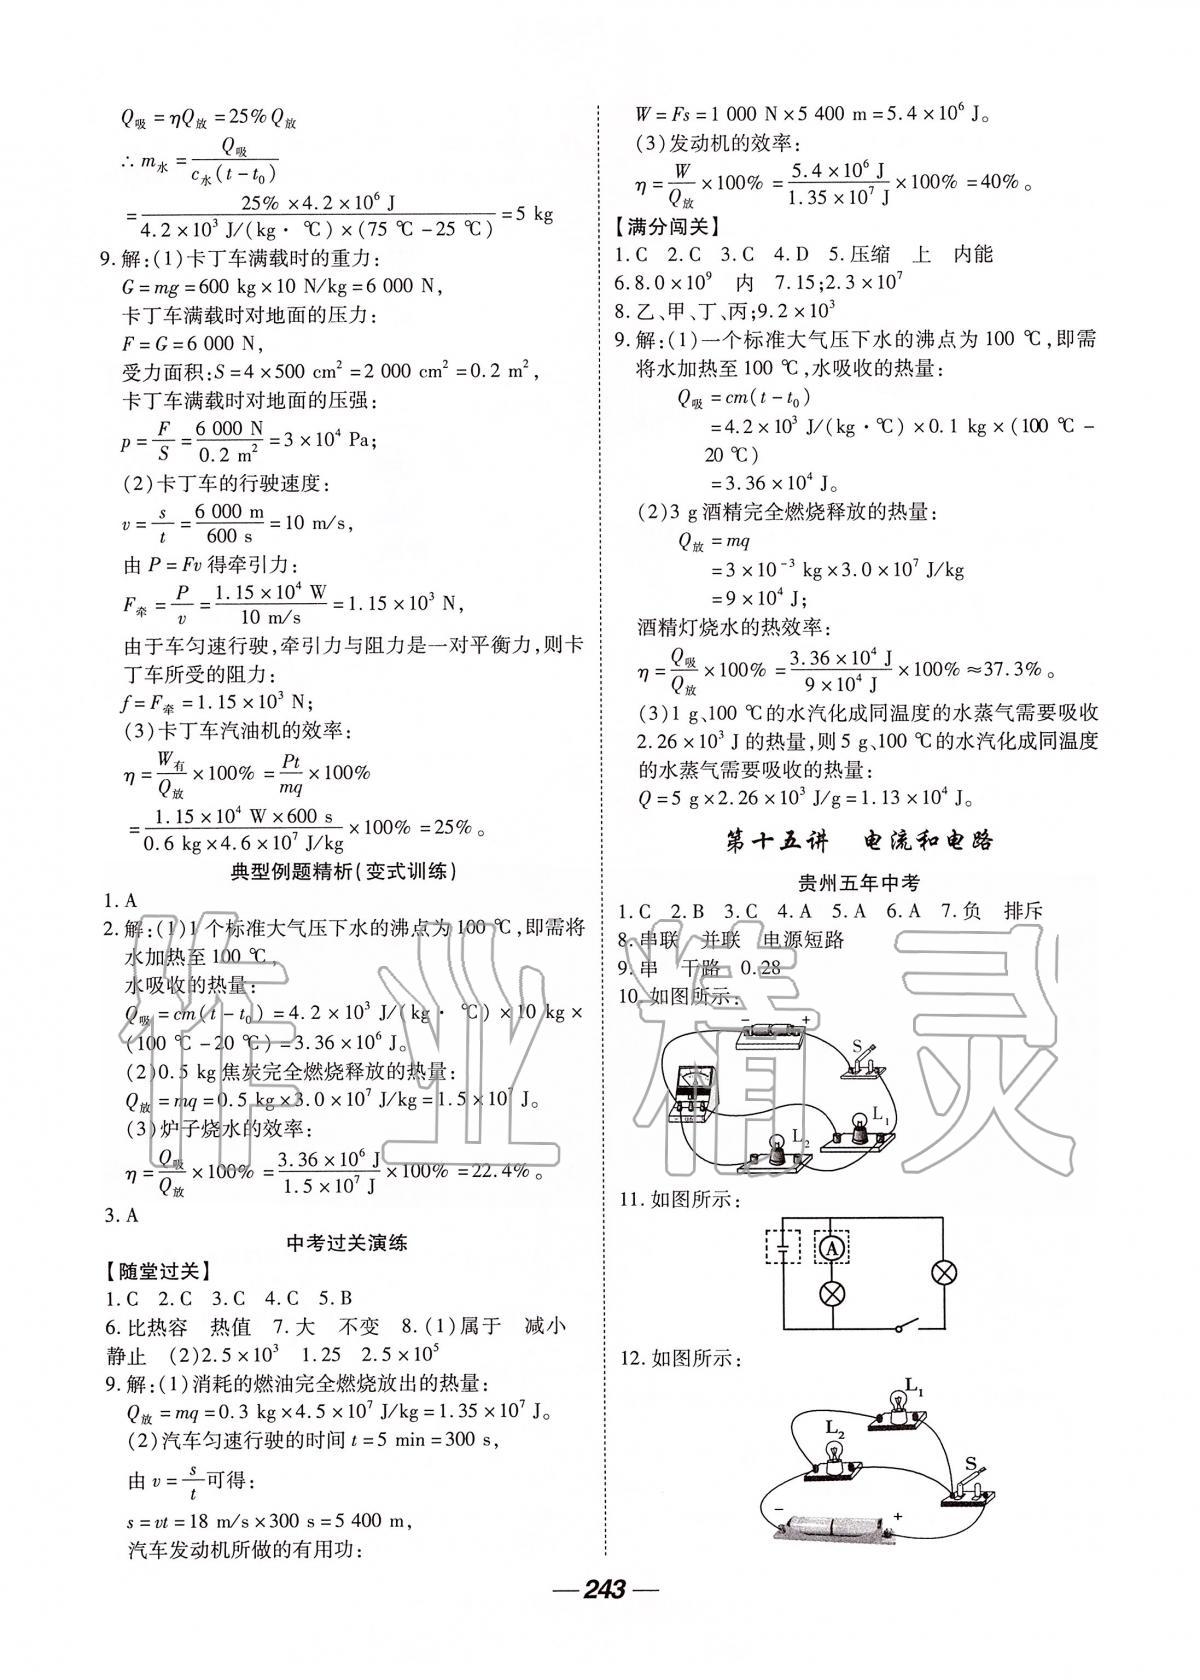 Q吸=ηQ放=25%Q放
∴m水=Q吸/(c水(t-t₀))
=(25%×4.2×10⁶ J)/(4.2×10³ J/(kg·℃)×(75 ℃-25 ℃))=5 kg
9.解:(1)卡丁车满载时的重力:
G=mg=600 kg×10 N/kg=6 000 N,
卡丁车满载时对地面的压力:
F=G=6 000 N,
受力面积:S=4×500 cm²=2 000 cm²=0.2 m²,
卡丁车满载时对地面的压强:
p=F/S=6 000 N/0.2 m²=3×10⁴ Pa;
(2)卡丁车的行驶速度:
v=s/t=6 000 m/600 s=10 m/s,
由P=Fv得牵引力:
F牵=P/v=1.15×10⁴ W/10 m/s=1.15×10³ N,
由于车匀速行驶,牵引力与阻力是一对平衡力,则卡
丁车所受的阻力:
f=F牵=1.15×10³ N;
(3)卡丁车汽油机的效率:
η=W有/Q放×100%=Pt/mq×100%
=(1.15×10⁴ W×600 s)/(0.6 kg×4.6×10⁷ J/kg)×100%=25%。
典型例题精析(变式训练)
1.A
2.解:(1)1个标准大气压下水的沸点为100 ℃,即需将
水加热至100 ℃,
水吸收的热量:
Q吸=cm(t-t₀)=4.2×10³ J/(kg·℃)×10 kg×
(100 ℃-20 ℃)=3.36×10⁶ J。
(2)0.5 kg焦炭完全燃烧释放的热量:
Q放=mq=0.5 kg×3.0×10⁷ J/kg=1.5×10⁷ J。
(3)炉子烧水的效率:
η=Q吸/Q放×100%=3.36×10⁶ J/1.5×10⁷ J×100%=22.4%。
3.A
中考过关演练
【随堂过关】
1.C 2.C 3.C 4.C 5.B
6.比热容 热值 7.大 不变 8.(1)属于 减小
静止 (2)2.5×10³ 1.25 2.5×10⁵
9.解:(1)消耗的燃油完全燃烧放出的热量:
Q放=mq=0.3 kg×4.5×10⁷ J/kg=1.35×10⁷ J。
(2)汽车匀速行驶的时间t=5 min=300 s,
由v=s/t可得:
s=vt=18 m/s×300 s=5 400 m,
汽车发动机所做的有用功:
W=Fs=1 000 N×5 400 m=5.4×10⁶ J。
(3)发动机的效率:
η=W/Q放×100%=5.4×10⁶ J/1.35×10⁷ J×100%=40%。
【满分闯关】
1.C 2.C 3.C 4.D 5.压缩 上 内能
6.8.0×10⁹ 内 7.15;2.3×10⁷
8.乙、甲、丁、丙;9.2×10³
9.解:(1)一个标准大气压下水的沸点为100 ℃,即需
将水加热至100 ℃,水吸收的热量:
Q吸=cm(t-t₀)
=4.2×10³ J/(kg·℃)×0.1 kg×(100 ℃-
20 ℃)
=3.36×10⁴ J。
(2)3 g酒精完全燃烧释放的热量:
Q放=mq
=3×10⁻³ kg×3.0×10⁷ J/kg
=9×10⁴ J;
酒精灯烧水的热效率:
η=Q吸/Q放×100%=3.36×10⁴ J/9×10⁴ J×100%≈37.3%。
(3)1 g、100 ℃的水汽化成同温度的水蒸气需要吸收
2.26×10³ J的热量,则5 g、100 ℃的水汽化成同温度
的水蒸气需要吸收的热量:
Q=5 g×2.26×10³ J/g=1.13×10⁴ J。
第十五讲 电流和电路
贵州五年中考
1.C 2.B 3.C 4.A 5.A 6.A 7.负 排斥
8.串联 并联 电源短路
9.串 干路 0.28
10.如图所示:
- +
S
L₁
L₂
11.如图所示:
A
12.如图所示:
L₁
L₂
S
- +
—243—
作业精灵